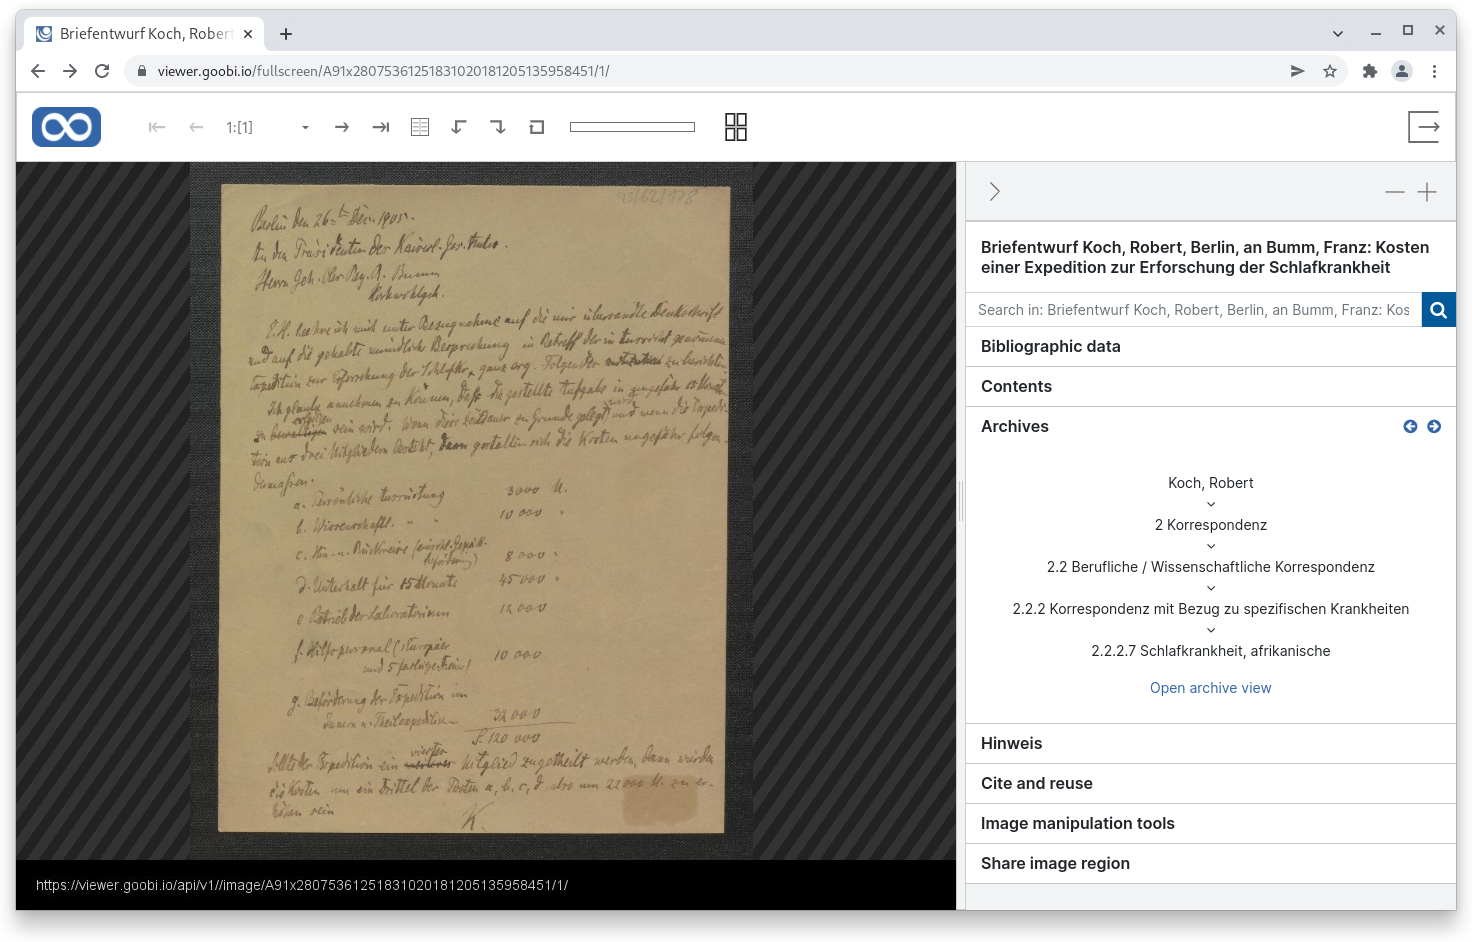 Briefentwurf Koch, Rober
viewer.goobi.io/fullscreen/A91x28075361251831020181205135958451/1/
1:[1]
93/62/178
Berlin den 26ten Dec. 1905.
An den Präsidenten des Kaiserl. Ges.
Herrn Geh. Ober Reg. R. Bumm
Hochwohlgeb.
E.H. beehre ich mich unter Bezugnahme auf die mir übersandte Denkschrift
und auf die gehabte mündliche Besprechung in Betreff der in Aussicht genommenen
Expedition zur Erforschung der Schlafkr. ganz erg. Folgendes zu berichten.
Ich glaube annehmen zu können, daß die gestellte Aufgabe in ungefähr 15 Monat
zu erfüllen sein wird. Wenn diese Zeitdauer zu Grunde gelegt wird und wenn die Expedi-
tion aus drei Mitgliedern besteht, dann gestalten sich die Kosten ungefähr folgen-
dermaßen.
a. Persönliche Ausrüstung 3000 M.
b. Wissenschaftl. " " 10 000 "
c. Hin- u. Rückreise (einschl. Gepäck-
beförderung) 8 000 "
d. Unterhalt für 15 Monate 45 000 "
e Betrieb der Laboratorium 12 000
f. Hilfspersonal (1 Europäer
und 5 farbige Diener) 10 000
g. Beförderung der Expedition im
Innern u. 32 000
S. 120 000
Sollte der Expedition ein vierter Mitglied zugetheilt werden, dann würden
die Kosten um ein Drittel der Posten a, b, c, d also um 22 000 M. zu er-
höhen sein
K.
https://viewer.goobi.io/api/v1//image/A91x28075361251831020181205135958451/1/
Briefentwurf Koch, Robert, Berlin, an Bumm, Franz: Kosten
einer Expedition zur Erforschung der Schlafkrankheit
Search in: Briefentwurf Koch, Robert, Berlin, an Bumm, Franz: Kos
Bibliographic data
Contents
Archives
Koch, Robert
2 Korrespondenz
2.2 Berufliche / Wissenschaftliche Korrespondenz
2.2.2 Korrespondenz mit Bezug zu spezifischen Krankheiten
2.2.2.7 Schlafkrankheit, afrikanische
Open archive view
Hinweis
Cite and reuse
Image manipulation tools
Share image region